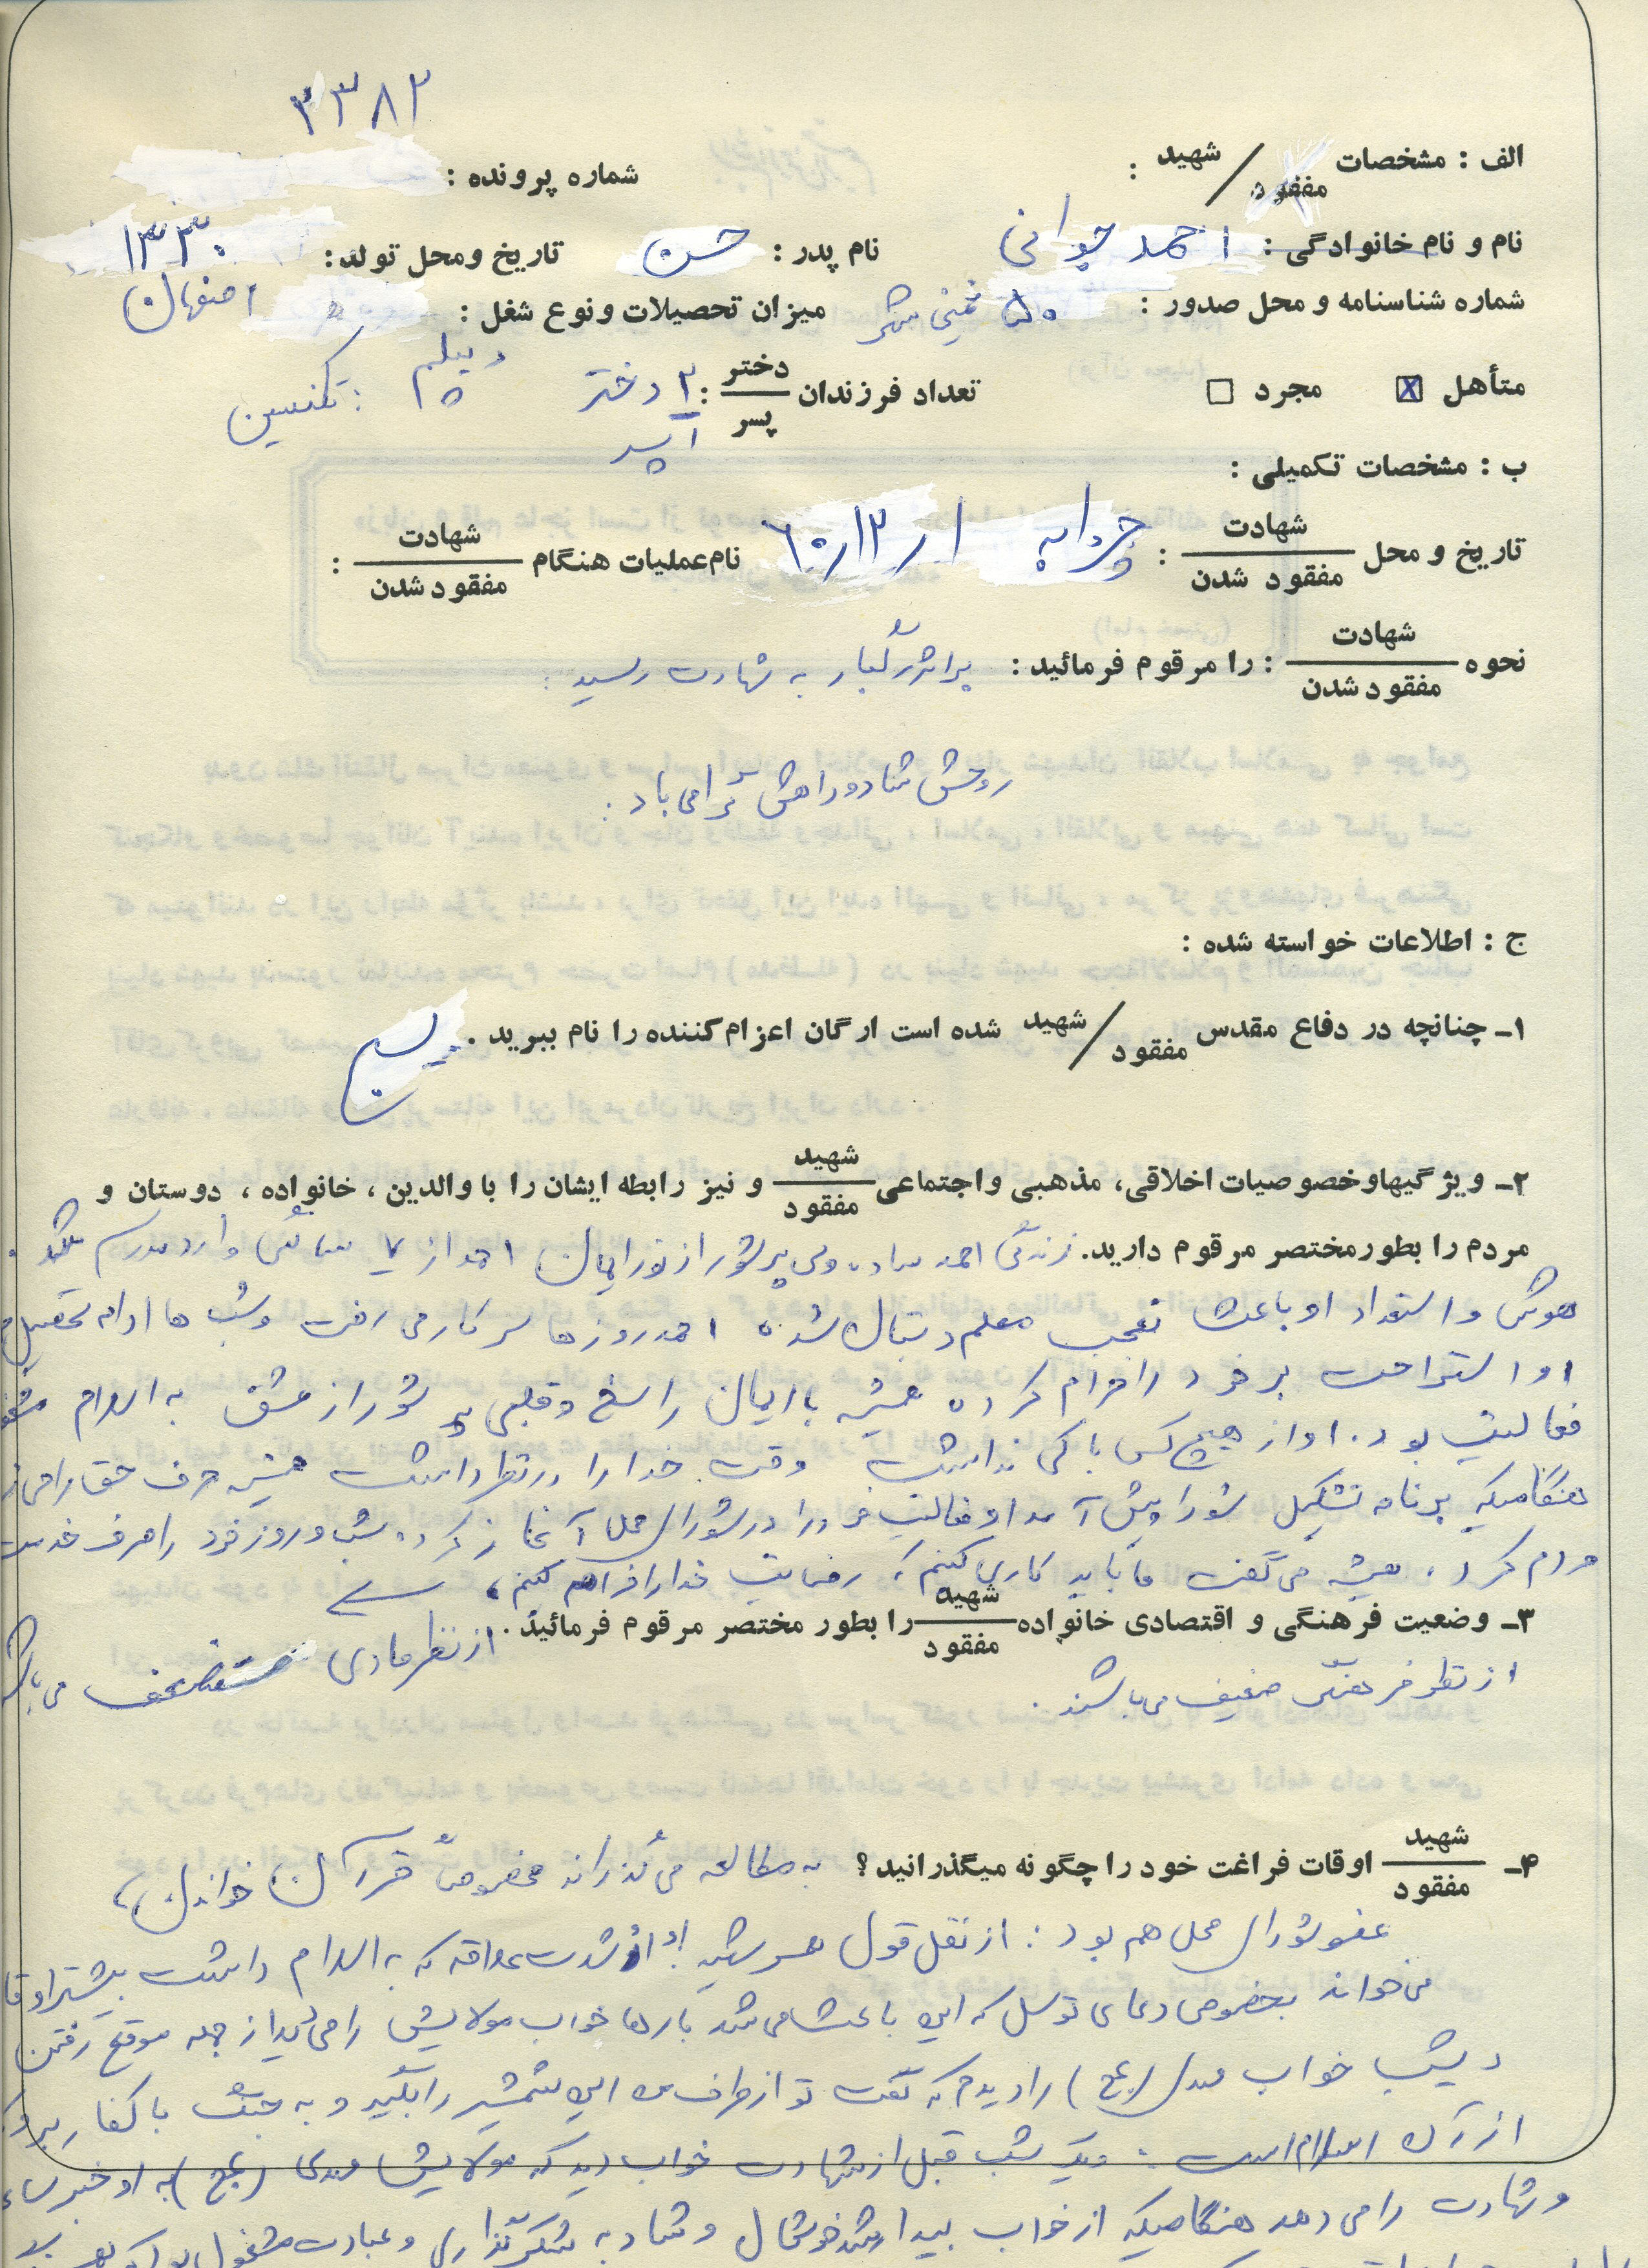 ۳۳۸۲
الف : مشخصات شهید / مفقود :
شماره پرونده :
نام و نام خانوادگی : احمد جوانی
نام پدر : حسن
تاریخ ومحل تولد : ۱۳۳۰ اصفهان
شماره شناسنامه و محل صدور : ۵۰ خمینی شهر
میزان تحصیلات ونوع شغل : دیپلم : تکنسین
متأهل ☒ مجرد ☐
تعداد فرزندان دختر / پسر : ۲ دختر ۱ پسر
ب : مشخصات تکمیلی :
تاریخ و محل شهادت / مفقود شدن : چزابه ۶۰/۱۲/۱
نام عملیات هنگام شهادت / مفقود شدن :
نحوه شهادت / مفقود شدن : را مرقوم فرمائید : براثر رگبار به شهادت رسید :
روحش شاد و راهش گرامی باد :
ج : اطلاعات خواسته شده :
۱ـ چنانچه در دفاع مقدس شهید / مفقود شده است ارگان اعزام کننده را نام ببرید . بسیج
۲ـ ویژگیهاوخصوصیات اخلاقی، مذهبی واجتماعی شهید / مفقود و نیز رابطه ایشان را با والدین ، خانواده ، دوستان و
مردم را بطور مختصر مرقوم دارید. زندگی احمد ساده ولی پرشور از نور ایمان احمد از ۷ سالگی وارد مدرسه شد .
هوش و استعداد او باعث تعجب معلم دبستان شده احمد روزها سر کار می رفت و شب ها ادامه تحصیل
او استراحت بر خود را حرام کرده همیشه با ایمان راسخ و قلبی پر شور از عشق به اسلام
فعالیت بود . او از هیچ کس باکی نداشت وقت خدا را در نظر داشت همیشه حرف حق را می
هنگامیکه برنامه تشکیل شورا پیش آمد او فعالیت خود را در شورای محل آغاز کرد . شب و روز خود را صرف خدمت
مردم کرد ، همیشه می گفت ما باید کاری کنیم که رضایت خدا را فراهم کنیم ،
۳ـ وضعیت فرهنگی و اقتصادی خانواده شهید / مفقود را بطور مختصر مرقوم فرمائید. از نظر مادی مستضعف می باشند
از نظر فرهنگی ضعیف می باشند .
۴ـ شهید / مفقود اوقات فراغت خود را چگونه میگذرانید ؟ به مطالعه می گذراند مخصوصاً قرآن خواندن ،
عضو شورای محل هم بود : از نقل قول همسر شهید : از شدت علاقه که به اسلام داشت بیشتر
می خواند بخصوص دعای توسل که این باعث می شد بارها خواب مولایش را می دید از جمله موقع رفتن
دیشب خواب مهدی (عج) را دیدم که گفت تو از طرف من این شمشیر را بگیر و به جنگ با کفار برو
از آن اسلام است : و یک شب قبل از شهادت خواب دید که مولایش مهدی (عج) به او خبر
و شهادت را می دهد هنگامیکه از خواب بیدار شد خوشحال و شاد به شکرگذاری و عبادت مشغول